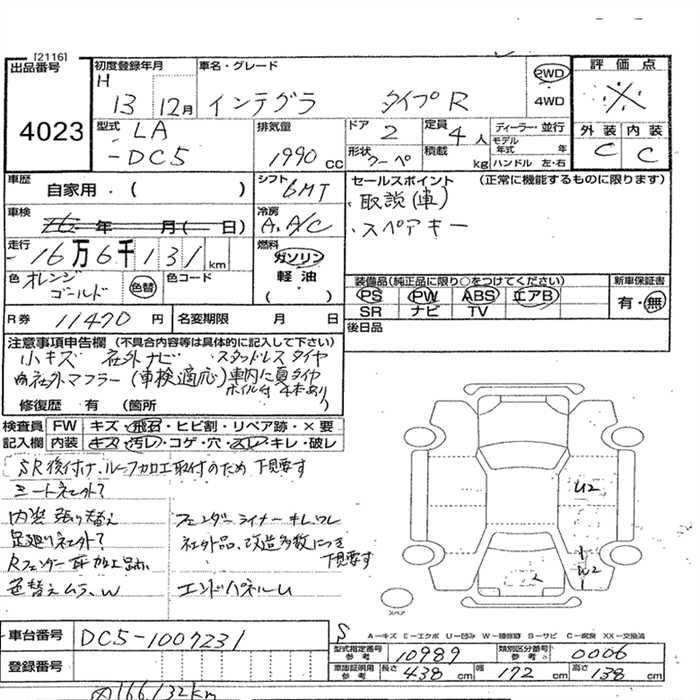 [2116]
出品番号
4023
初度登録年月
H
13 12月
車名・グレード
インテグラ タイプR
2WD
4WD
評価点
※
外装 内装
C C
型式 LA
-DC5
排気量
1990 CC
ドア 2
形状 クーペ
定員 4人
積載 kg
ディーラー・並行
モデル年式 年
ハンドル 左・右
車歴
自家用・( )
シフト 6MT
セールスポイント (正常に機能するものに限ります)
取説(車)
スペアキー
車検 年 月( 日)
冷房 A.A/C
走行 16万6千131km
燃料
ガソリン
軽油
( )
色 オレンジ
ゴールド
色替
色コード
装備品(純正品に限り○をつけてください)
PS PW ABS エアB
SR ナビ TV
新車保証書
有・無
R券 11470円
名変期限 月 日
後日品
注意事項申告欄 (不具合内容等は具体的に記入して下さい)
小キズ 社外ナビ スタッドレスタイヤ
社外マフラー(車検適応)車内に夏タイヤ
ホイル付 4本あり
修復歴 有 (箇所 )
検査員 FW キズ・飛石・ヒビ割・リペア跡・×要
記入欄 内装 キズ・汚レ・コゲ・穴・スレ・キレ・破レ
SR後付け、ルーフカロエ取付のため 下見要す
シート社外?
内装張り替え
足廻り社外?
Rフェンダー耳加工
色替えムラ、W
フェンダーライナーキレ、ワレ
社外品、改造多数につき
下見要す
エンドパネルU
U2
W2
スペア
A－キズ E－エクボ U－凹み W－補修跡 S－サビ C－腐食 XX－交換済
車台番号 DC5-1007231
登録番号
S
型式指定番号
参考
10989
類別区分番号
参考
0006
車庫証明用
参考
長さ 438cm 幅 172cm 高さ 138cm
166,132km